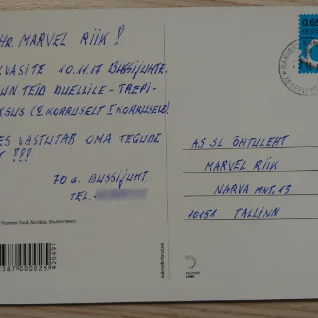 HR. MARVEL RIIK!
VASITE 10.11.17 BUSSIJUHTE,
UN TEID DUELLILE - TREPI-
KSUS (2 KORRUSELT I KORRUSELE).
ES VASTUTAB OMA TEGUDE
???
70 a. BUSSIJUHT
TEL.
AS. SL ÕHTULEHT
MARVEL RIIK
NARVA MNT, 13
10151 TALLINN
0.65
EESTI
kalenderland.ee
387000025
420491